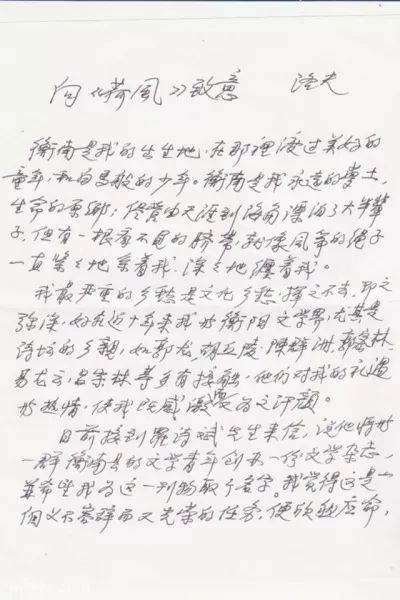 向《荷風》致意 洛夫
衡南是我的出生地,在那裡渡过美好的
童年,和白馬般的少年。衡南是我永遠的凈土,
生命的原鄉;儘管由天涯到海角漂泊了大半輩
子,但有一根看不見的臍帶,就像風箏的繩子
一直緊々地系着我,深々地纏着我。
我最严重的乡愁是文化乡愁,揮之不去,即之
弥深,好在近十年来我与衡阳文学界,尤其是
詩坛的乡親,如郭龙、胡丘陵、陳群洲、
易龙云、吕宗林等多有接触,他们对我的礼遇
热情,使我既感激又為之汗顏。
日前接到羅詩斌先生来信,说他将与
一群衡南县的文学青年创办一份文学杂志,
並希望我为这一刊物取个名字。我觉得这是一
個义不容辞而又光荣的任务,便欣然应命,